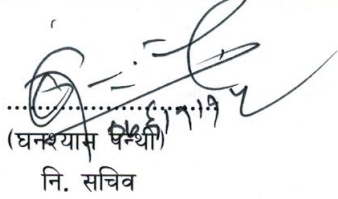 ..............................
(घनश्याम पन्थी)
नि. सचिव